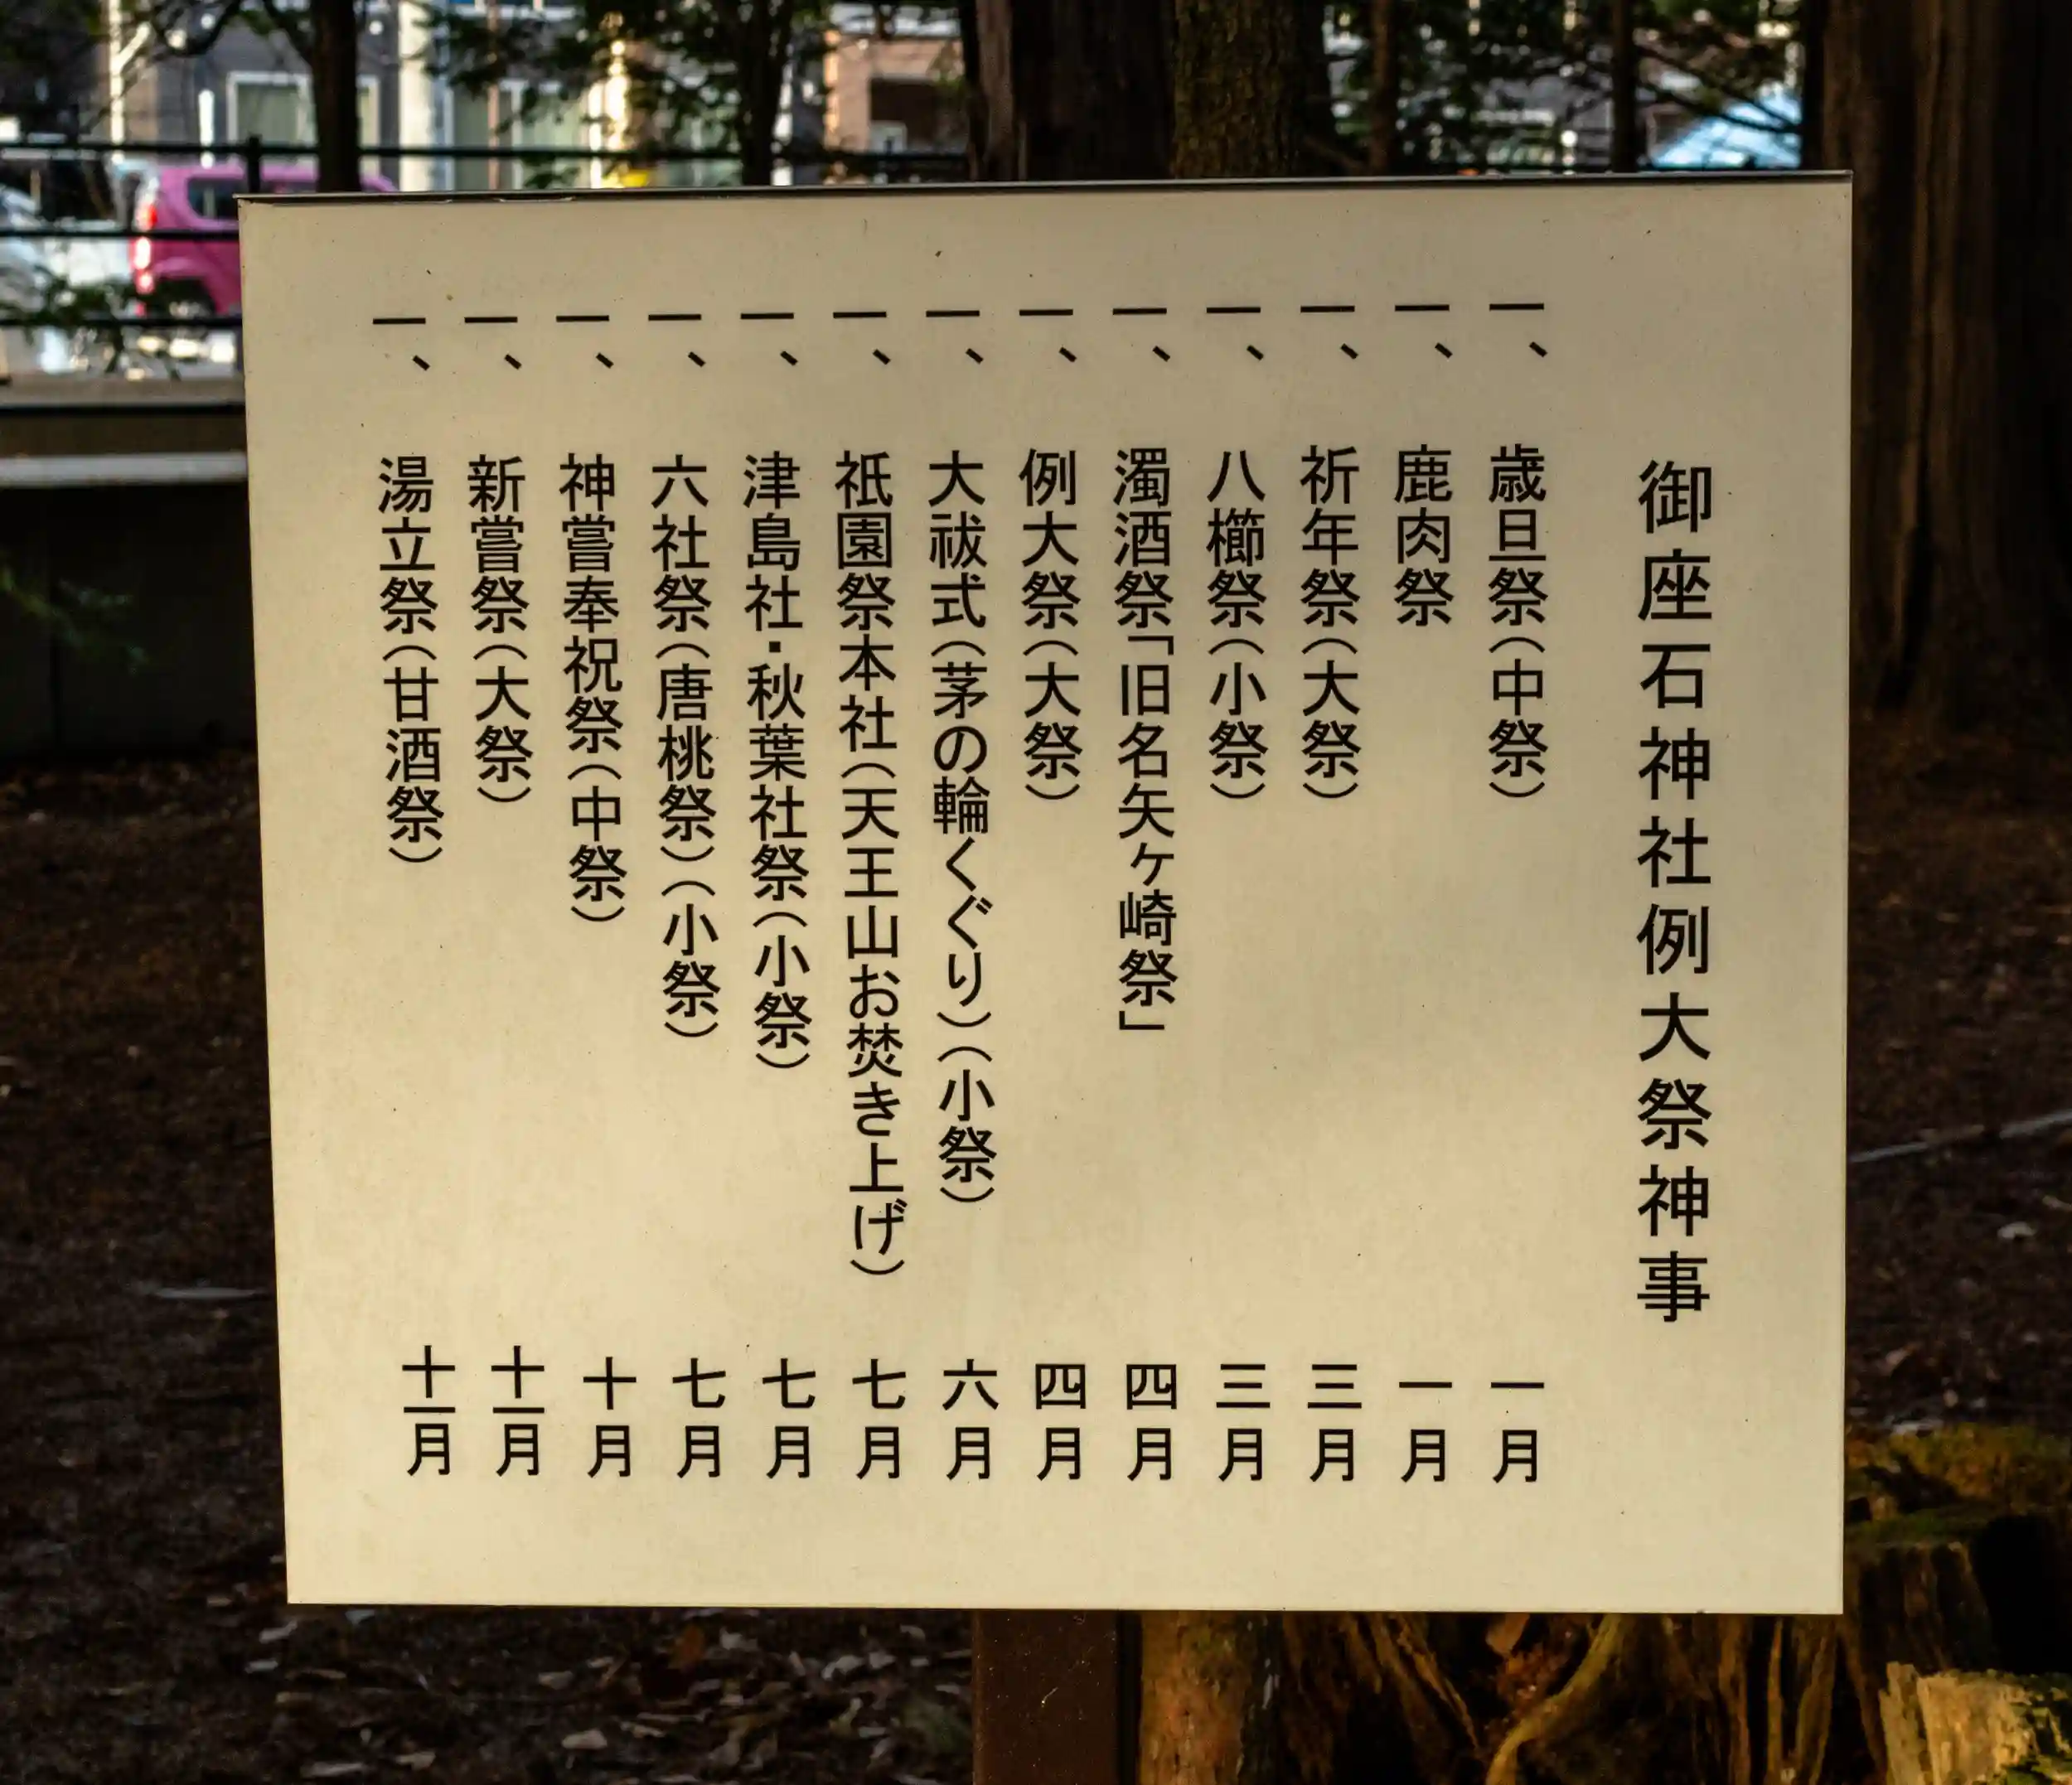 御座石神社例大祭神事
一、歳旦祭（中祭） 一月
一、鹿肉祭 一月
一、祈年祭（大祭） 三月
一、八櫛祭（小祭） 三月
一、濁酒祭「旧名矢ヶ崎祭」 四月
一、例大祭（大祭） 四月
一、大祓式（茅の輪くぐり）（小祭） 六月
一、祇園祭本社（天王山お焚き上げ） 七月
一、津島社・秋葉社祭（小祭） 七月
一、六社祭（唐桃祭）（小祭） 七月
一、神嘗奉祝祭（中祭） 十月
一、新嘗祭（大祭） 十一月
一、湯立祭（甘酒祭） 十一月